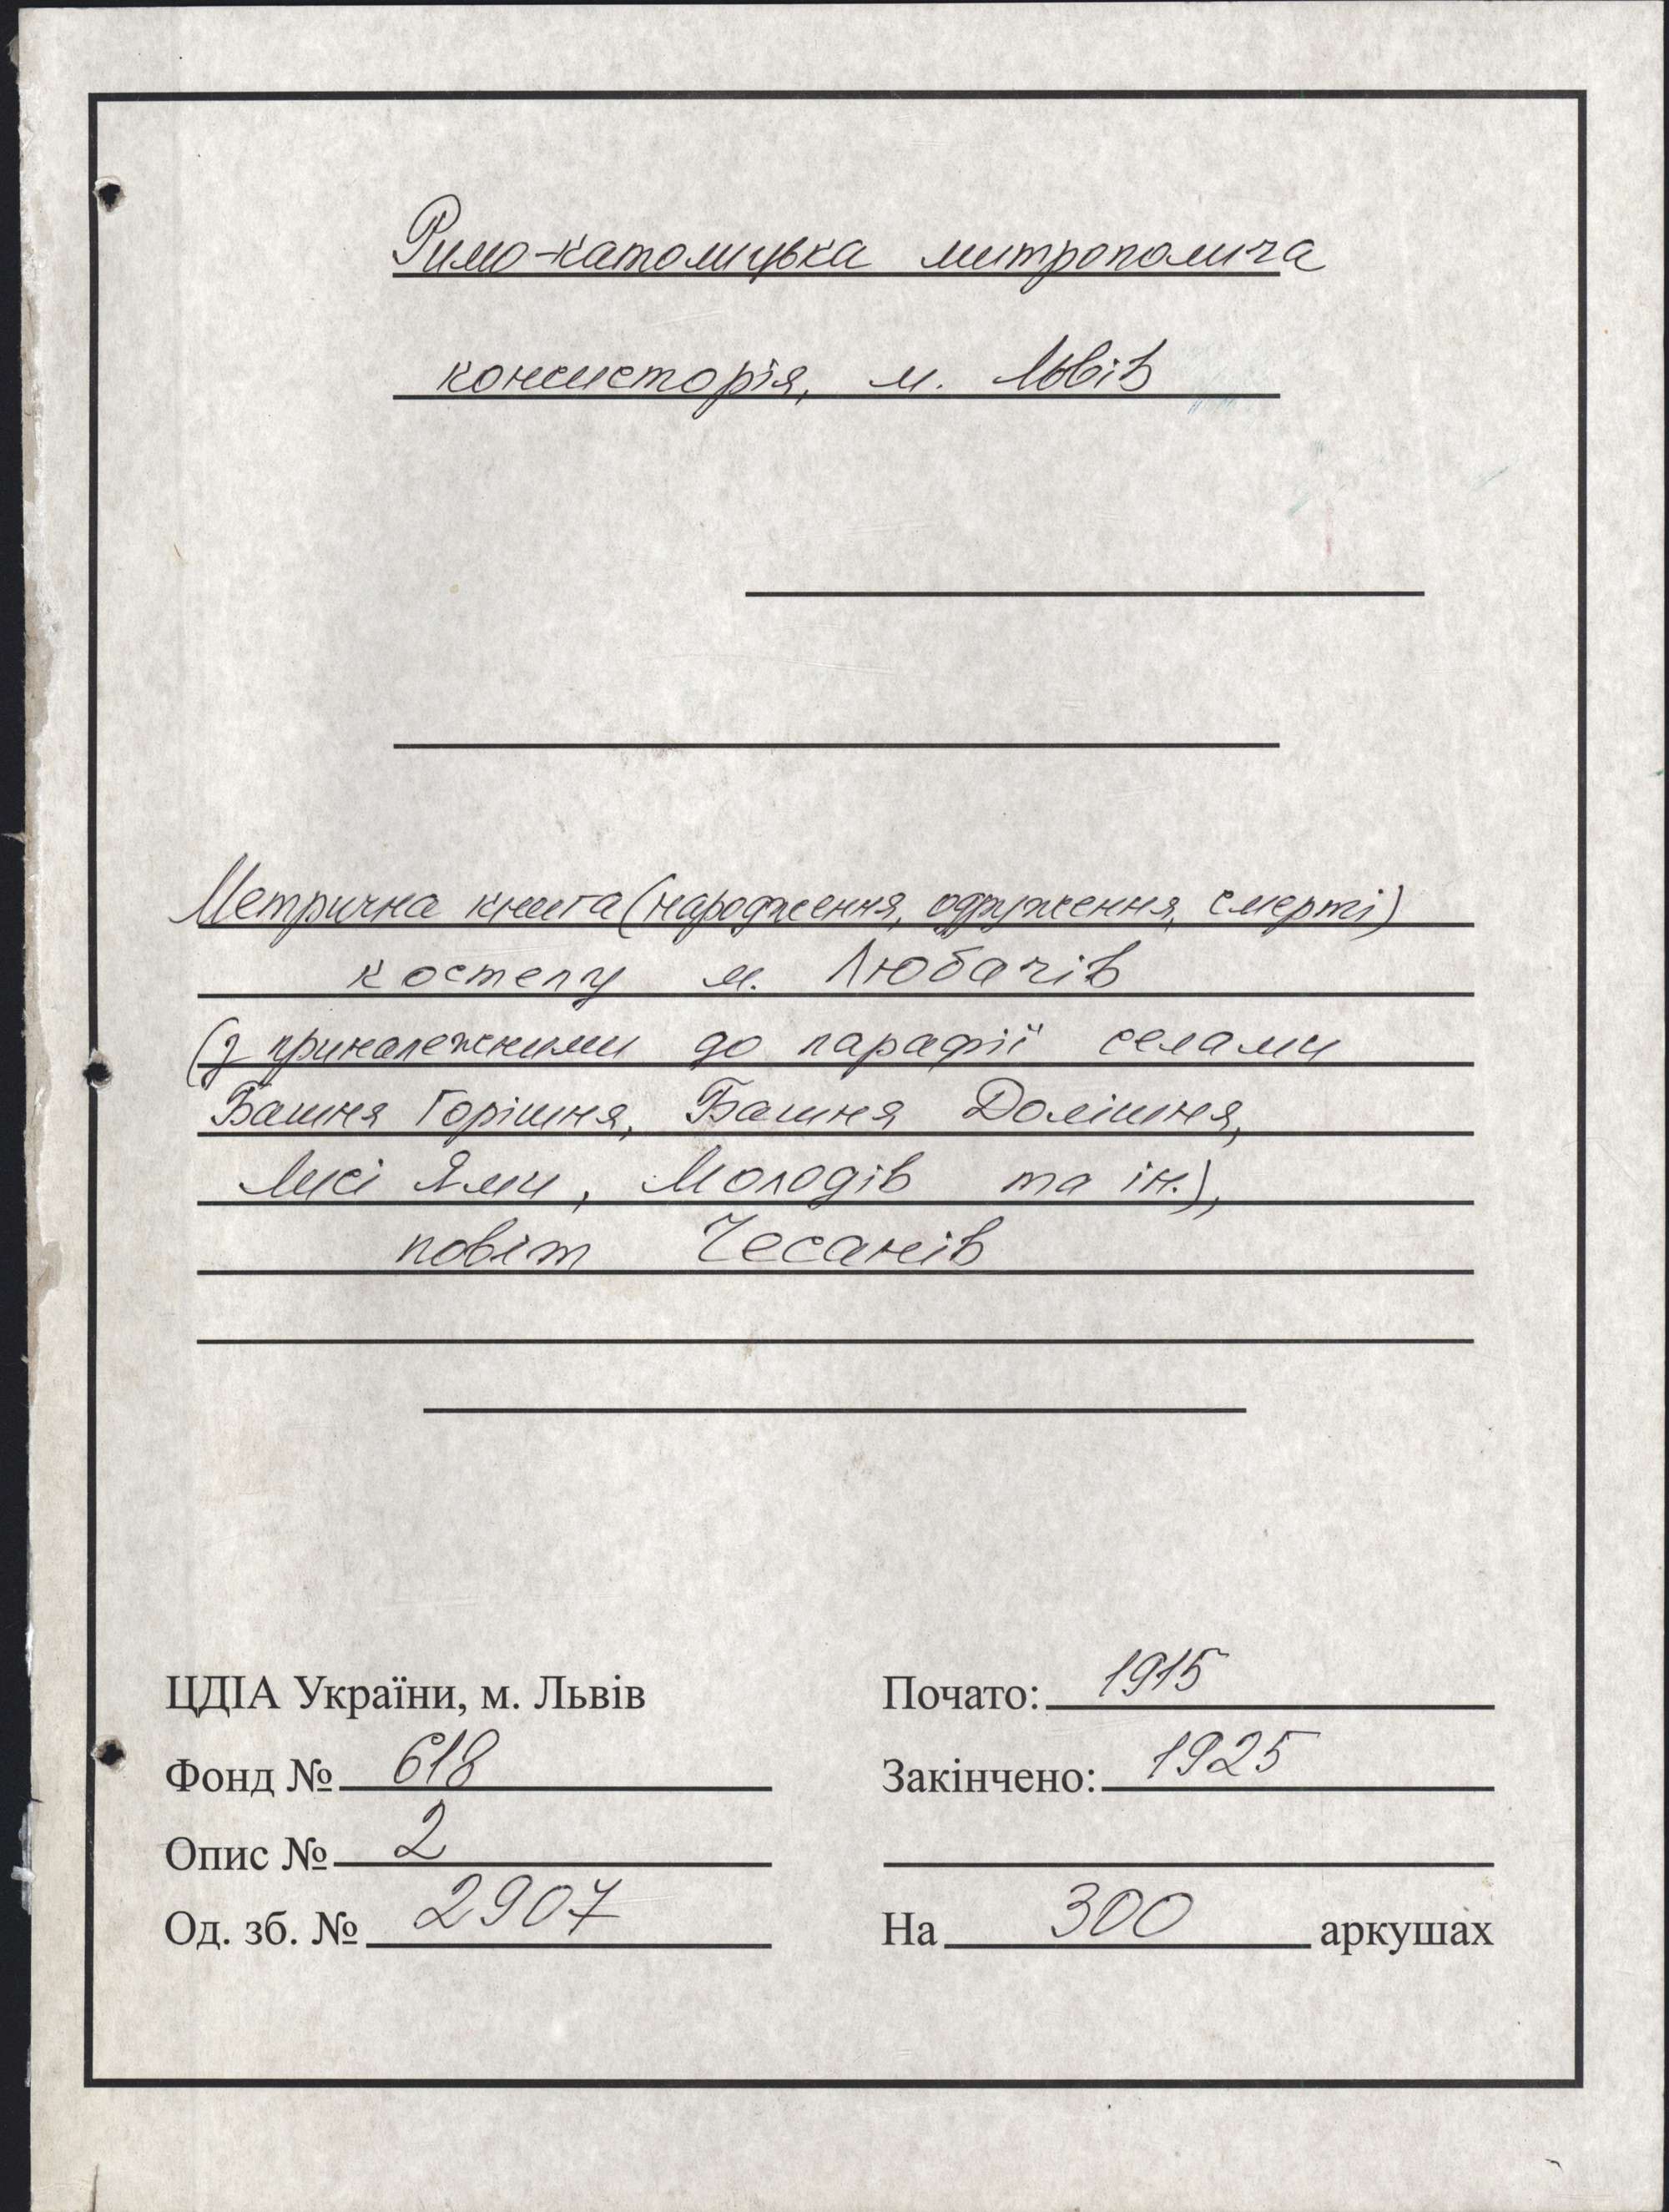 Римо-католицька митрополича
консисторія, м. Львів
Метрична книга (народження, одруження, смерті)
костелу м. Любачів
(з приналежними до парафії селами
Башня Горішня, Башня Долішня,
Лисі Ями, Молодів та ін.),
повіт Чесанів
ЦДІА України, м. Львів
Почато: 1915
Фонд № 618
Закінчено: 1925
Опис № 2
Од. зб. № 2907
На 300 аркушах